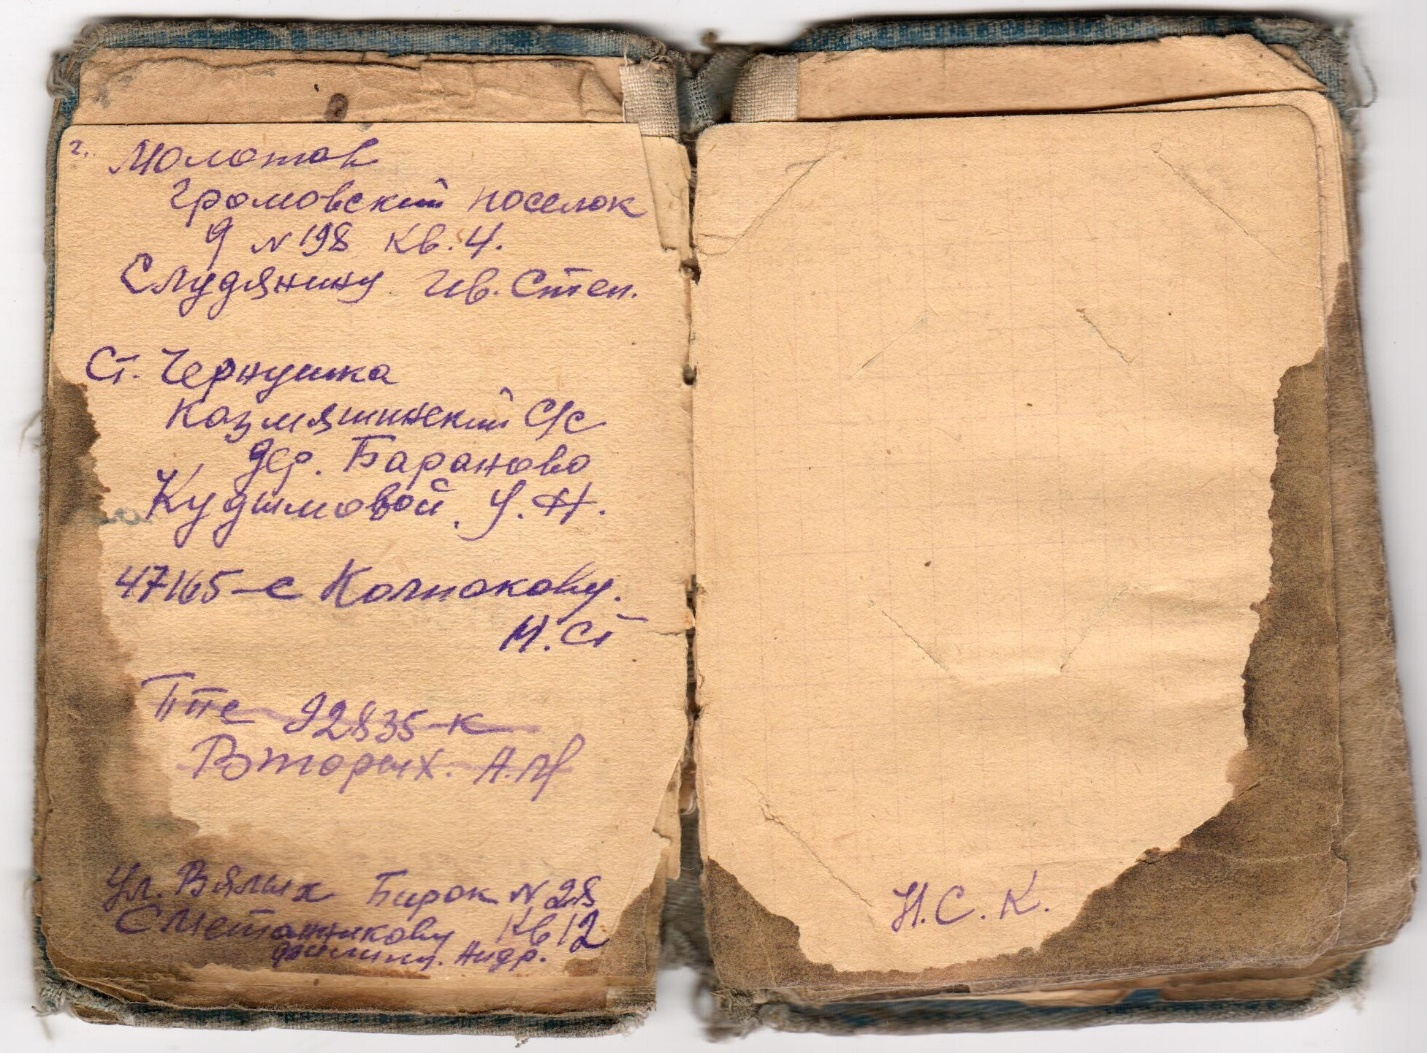 г. Молотов
Громовский поселок
д №198 кв. 4.
Слудянину Ив. Степ.
Ст. Чернушка
Козмяшинский С/с
дер. Бараново
Кудымовой У. Н.
47165-с Колпакову.
И. Ст
ппс 92835-к
Вторых. А.
Ул. Вялых Барак № 28
Сметанникову Кв 12
Андр.
Н. С. К.